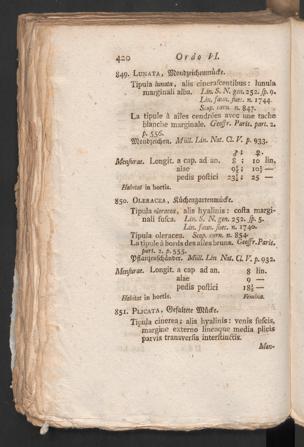 420 Ordo VI.
849. LUNATA, Mondzeichenmücke.
Tipula lunata, alis cinerascentibus: lunula
marginali alba. Lin. S. N. gen. 252. sp. 9.
Lin. faun. suec. n. 1744.
Scop. carn. n. 847.
La tipule à ailes cendrées avec une tache
blanche marginale. Geoffr. Paris. part. 2.
p. 556.
Mondzeichen. Müll. Lin. Nat. Cl. V. p. 933.
Mensurae. Longit. a cap. ad an. 8 ; 10 lin.
alae
pedis postici
Habitat in hortis.
850. OLERACEA, Küchengartenmücke.
Tipula oleracea, alis hyalinis: costa margi-
nali fusca. Lin. S. N. gen. 252. sp. 5.
Lin. faun. suec. n. 1740.
Tipula oleracea. Scop. carn. n. 854.
La tipule à bords des ailes bruns. Geoffr. Paris.
part. 2. p. 555.
Pflanzenschänder. Müll. Lin. Nat. Cl. V. p. 932.
Mensurae. Longit. a cap ad an. 8 lin.
alae 9 —
pedis postici
Habitat in hortis. Femina.
851. PLICATA, Gefaltete Mücke.
Tipula cinerea; alis hyalinis: venis fuscis,
margine externo lineaque media plicis
parvis transversis interstinctis.
Men-